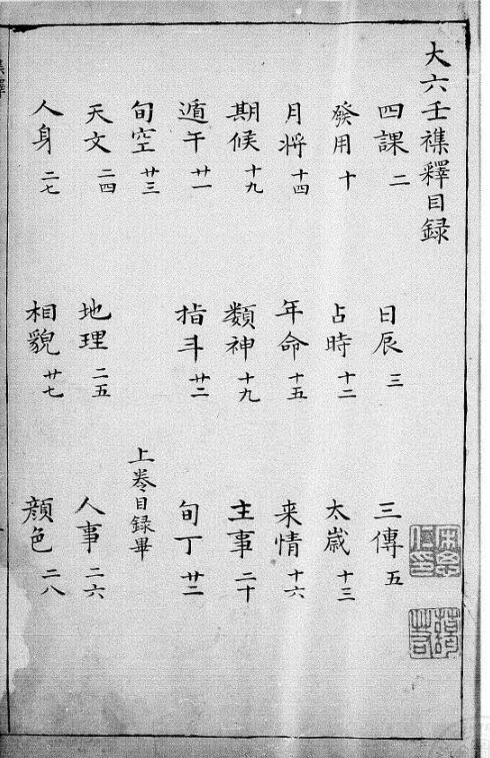 大六壬襍釋目録
四課 二 日辰 三 三傳 五
發用 十 占時 十二 太嵗 十三
月将 十四 年命 十五 来情 十六
期候 十九 類神 十九 主事 二十
遁干 廿一 指斗 廿二 旬丁 廿二
旬空 廿三 上卷目録畢
天文 二四 地理 二五 人事 二六
人身 二七 相貌 廿七 顔色 二八